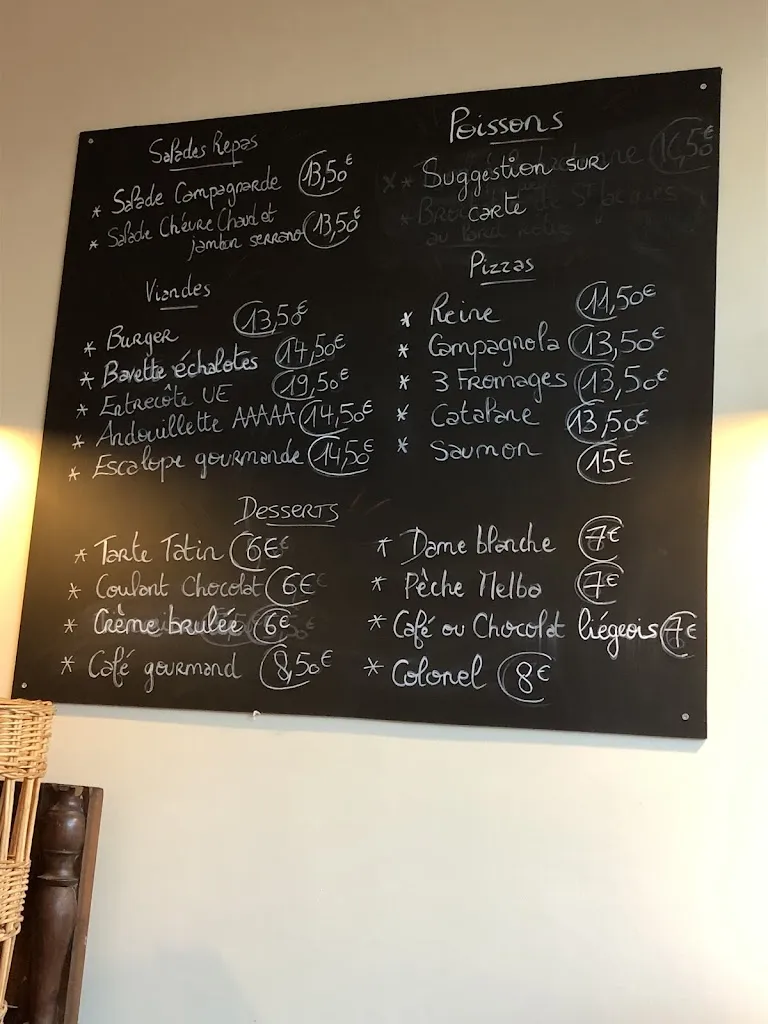 Salades Repas
* Salade Campagnarde 13,50€
* Salade Chèvre Chaud et
jambon serrano 13,50€
Viandes
* Burger 13,50€
* Bavette échalotes 14,50€
* Entrecôte UE 19,50€
* Andouillette AAAAA 14,50€
* Escalope gourmande 14,50€
Poissons
* Suggestion sur
carte
16,50€
Pizzas
* Reine 11,50€
* Campagnola 13,50€
* 3 Fromages 13,50€
* Catalane 13,50€
* Saumon 15€
Desserts
* Tarte Tatin 6€
* Coulant Chocolat 6€
* Crème brulée 6€
* Café gourmand 8,50€
* Dame blanche 7€
* Pêche Melba 7€
* Café ou Chocolat liégeois 7€
* Colonel 8€